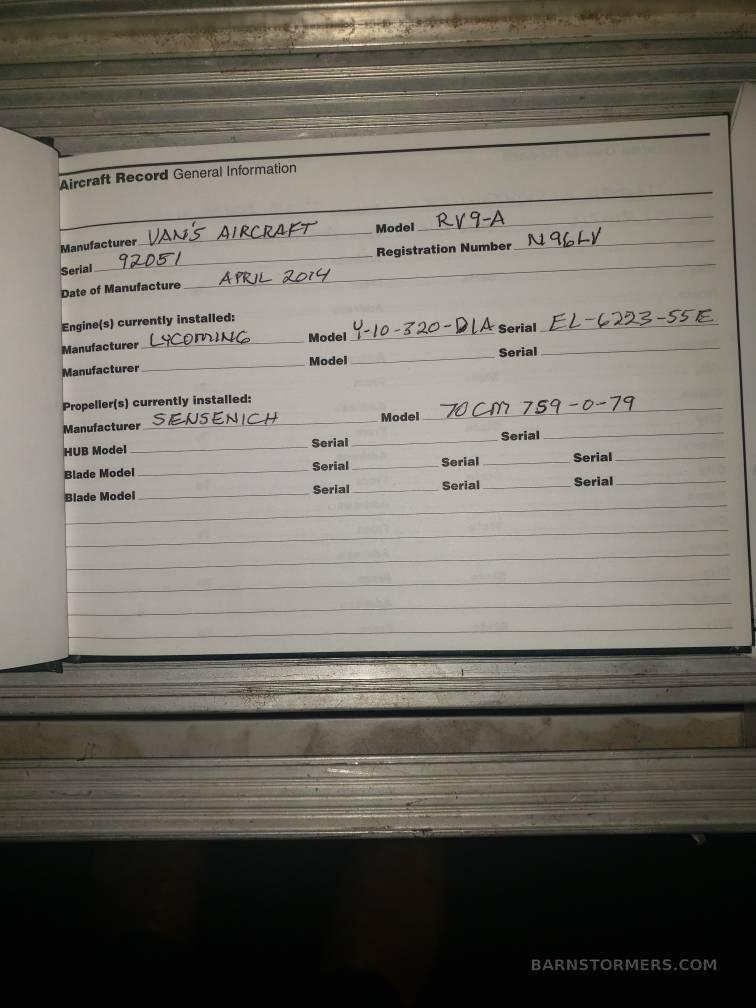 Aircraft Record General Information
Manufacturer VAN'S AIRCRAFT Model RV9-A
Serial 92051 Registration Number N96LV
Date of Manufacture APRIL 2014
Engine(s) currently installed:
Manufacturer LYCOMING Model Y-10-320-D1A Serial EL-6223-55E
Manufacturer Model Serial
Propeller(s) currently installed:
Manufacturer SENSENICH Model 70CM 7S9-0-79
HUB Model Serial Serial
Blade Model Serial Serial Serial
Blade Model Serial Serial Serial
BARNSTORMERS.COM